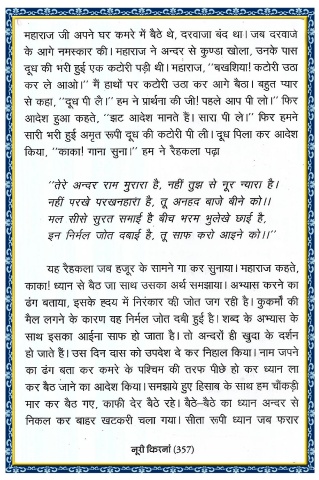 महाराज जी अपने घर कमरे में बैठे थे, दरवाजा बंद था। जब दरवाजे
के आगे नमस्कार की। महाराज ने अन्दर से कुण्डा खोला, उनके पास
दूध की भरी हुई एक कटोरी पड़ी थी। महाराज, "बखशिया! कटोरी उठा
कर ले आओ।" मैं हाथों पर कटोरी उठा कर आगे बैठा। बहुत प्यार
से कहा, "दूध पी लै।" हम ने प्रार्थना की जी! पहले आप पी लो।" फिर
आदेश हुआ कहते, "झट आदेश मानते हैं। सारा पी ले।" फिर हमने
सारी भरी हुई अमृत रूपी दूध की कटोरी पी ली। दूध पिला कर आदेश
किया, "काका! गाना सुना।" हम ने रैहकला पढ़ा
"तेरे अन्दर राम मुरारा है, नहीं तुझ से नूर न्यारा है।
नहीं परखे परखनहारा है, तू अनहद बाजे बीने को।।
मल सीसे सुरत समाई है बीच भरम भुलेखे छाई है,
इन निर्मल जोत दबाई है, तू साफ करो आइने को।।"
यह रैहकला जब हजूर के सामने गा कर सुनाया। महाराज कहते,
काका! ध्यान से बैठ जा साथ उसका अर्थ समझाया। अभ्यास करने का
ढंग बताया, इसके हृदय में निरंकार की जोत जग रही है। कुकर्मों की
मैल लगने के कारण वह निर्मल जोत दबी हुई है। शब्द के अभ्यास के
साथ इसका आईना साफ हो जाता है। तो अन्दरों ही खुदा के दर्शन
हो जाते हैं। उस दिन दास को उपदेश दे कर निहाल किया। नाम जपने
का ढंग बता कर कमरे के पश्चिम की तरफ पीछे हो कर ध्यान ला
कर बैठ जाने का आदेश किया। समझाये हुए हिसाब के साथ हम चौंकड़ी
मार कर बैठ गए, काफी देर बैठे रहे। बैठे-बैठे का ध्यान अन्दर से
निकल कर बाहर खटकरी चला गया। सीता रूपी ध्यान जब फरार
नूरी किरनां (357)